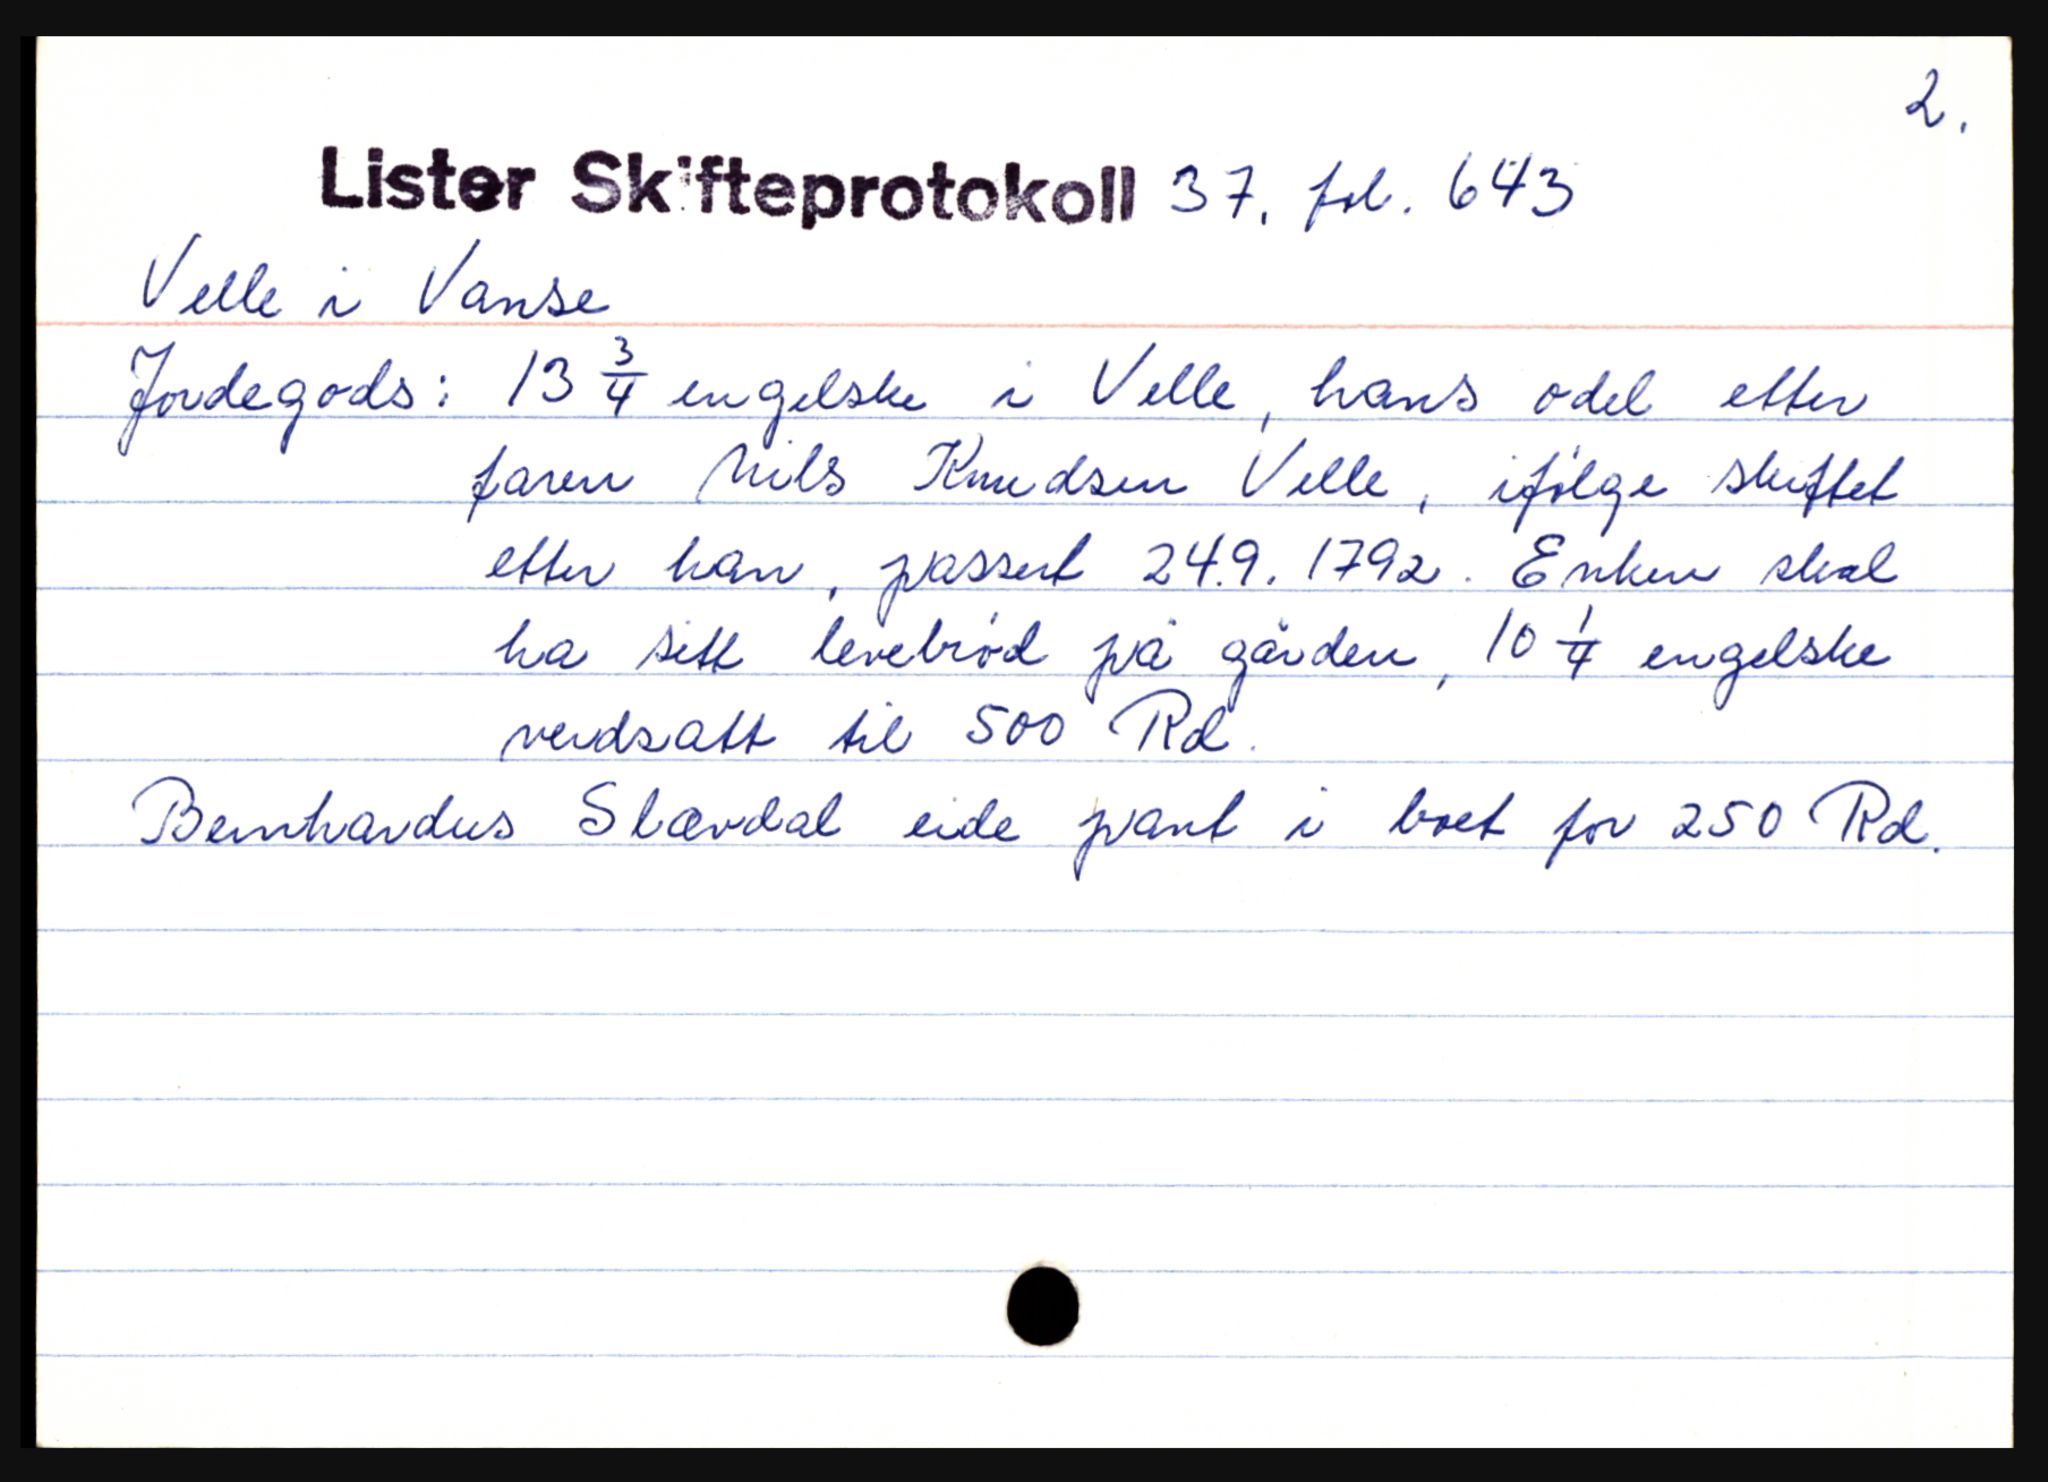 2.
Lister Skifteprotokoll 37. fol. 643
Velle i Vanse
Jordegods: 13 3/4 engelske i Velle, hans odel etter
faren Nils Knudsen Velle, ifølge skiftet
etter han, passert 24.9.1792. Enken skal
ha sitt levebrød på gården, 10 1/4 engelske
verdsatt til 500 Rd.
Bernhardus Slærdal eide pant i boet for 250 Rd.